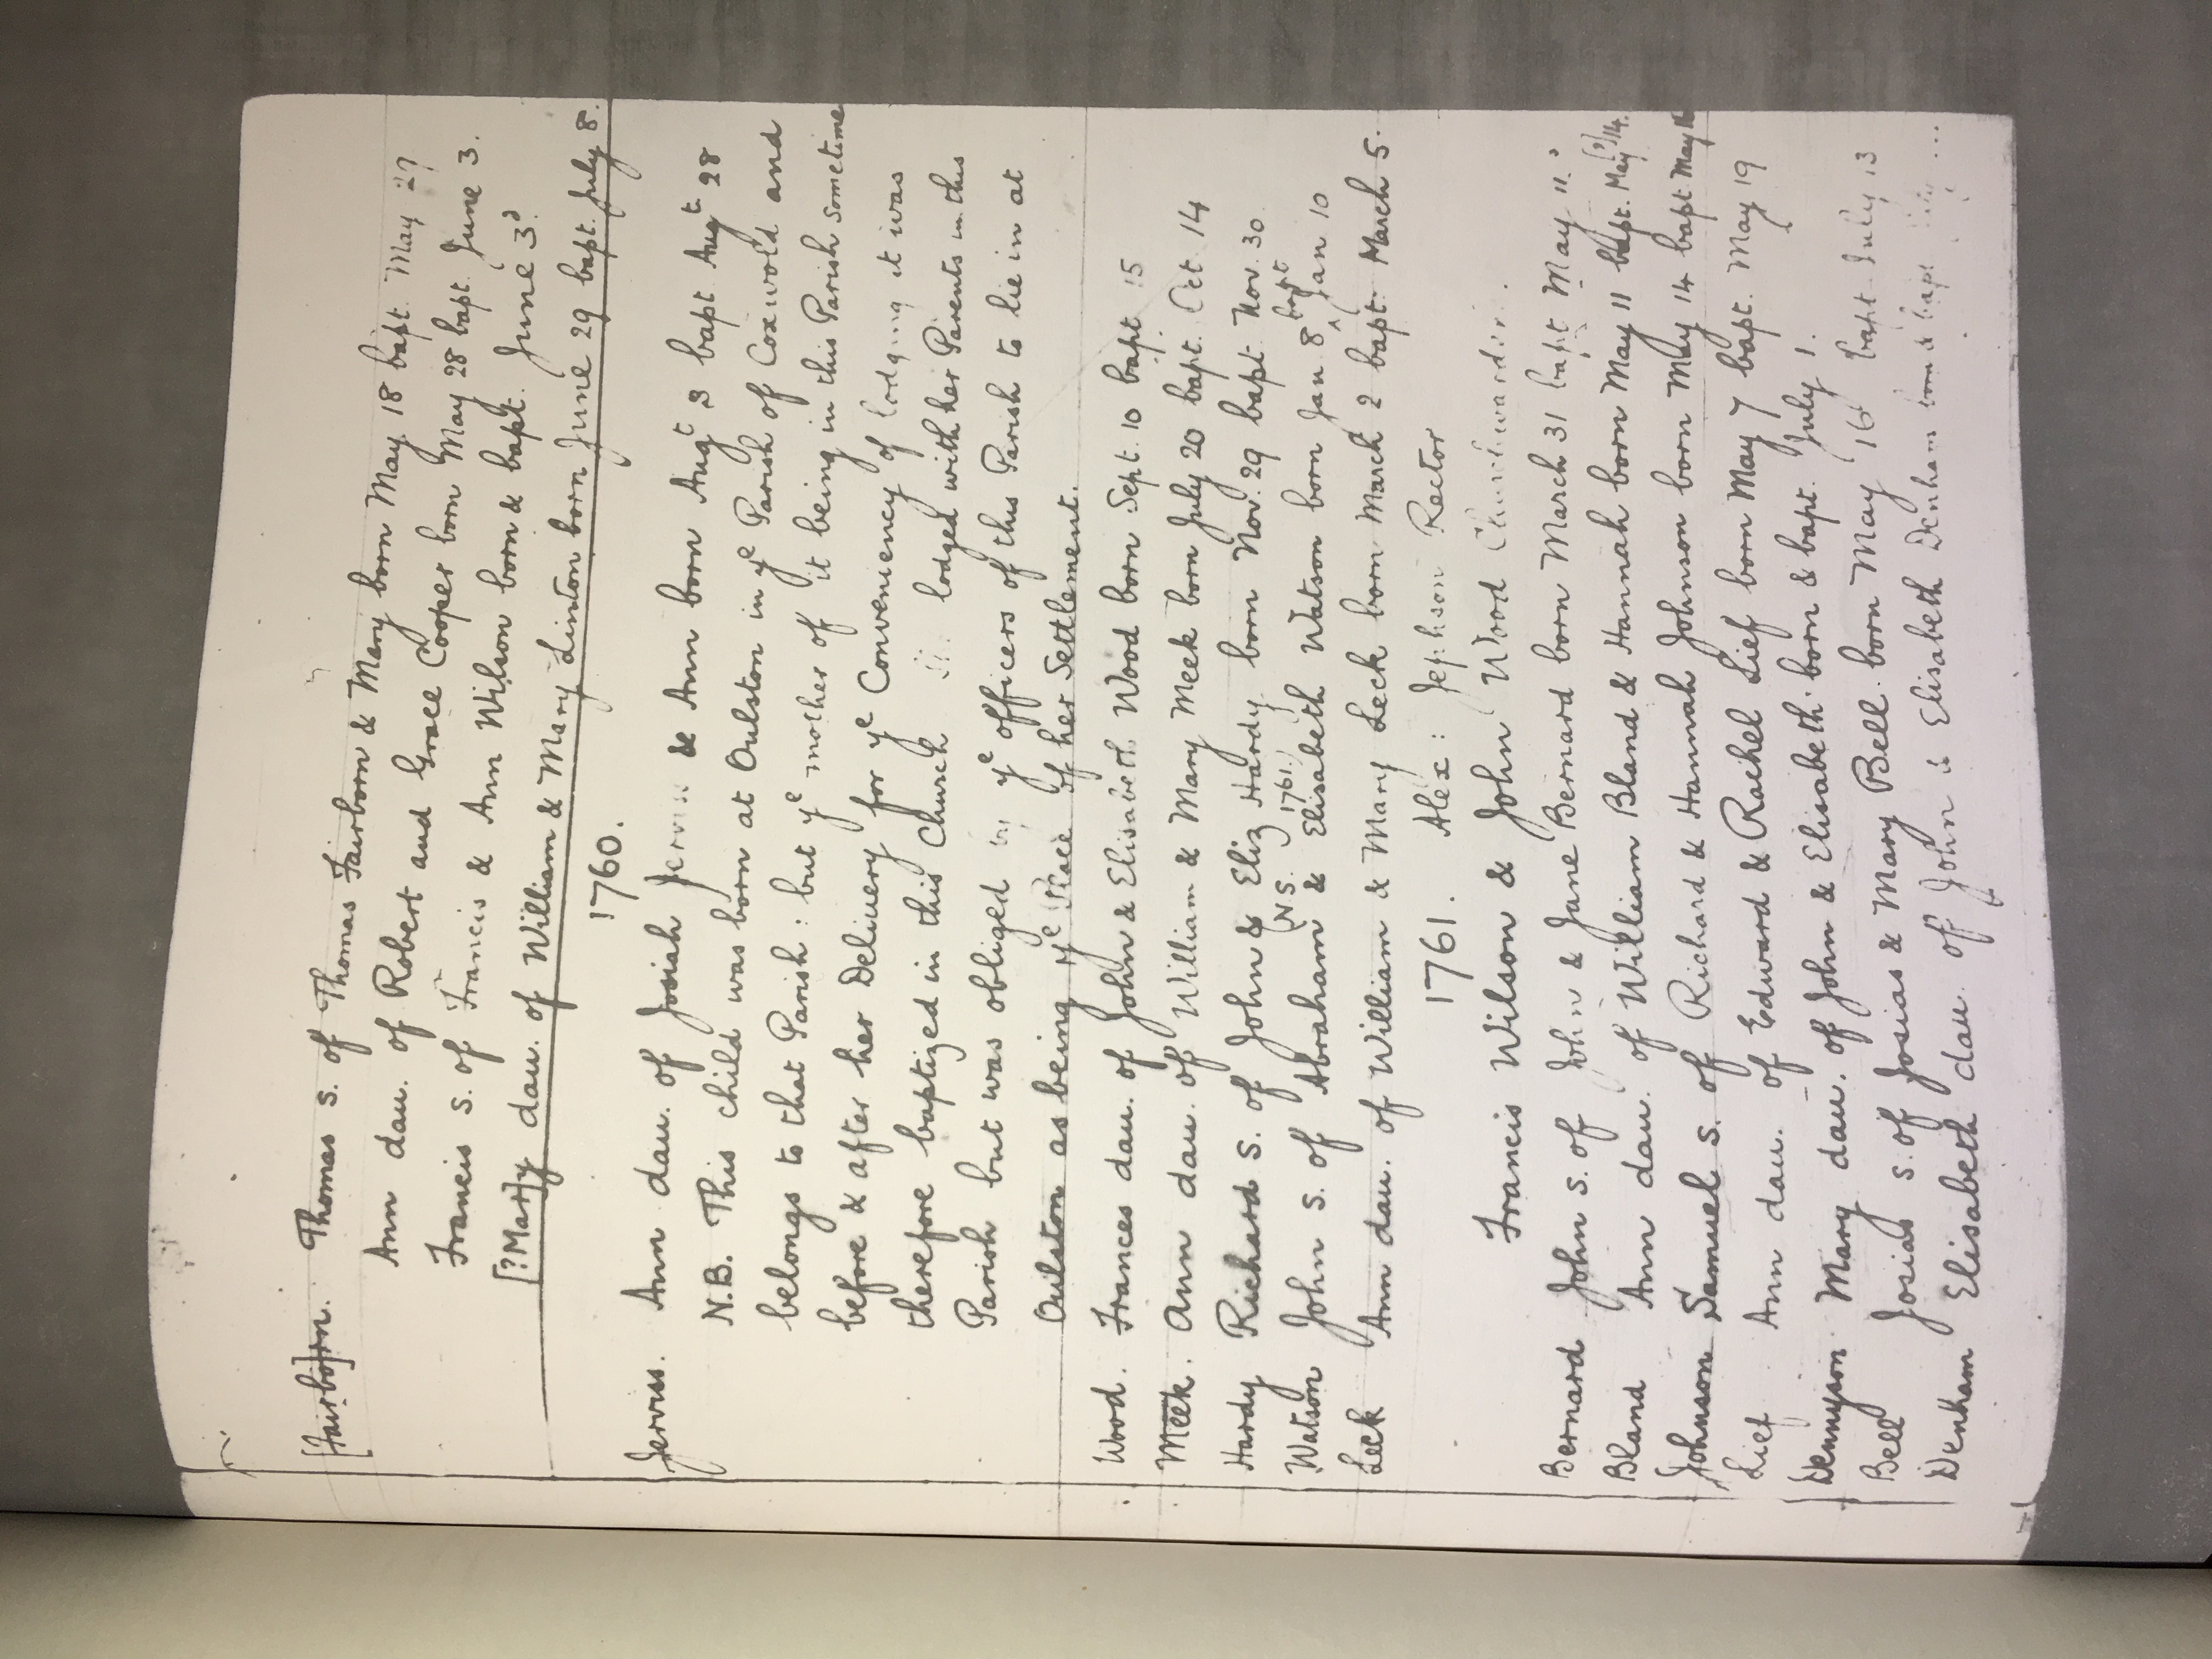 [Fairbo]rn. Thomas s. of Thomas Fairborn & Mary born May 18 bapt. May 27
Ann dau. of Robert and Grace Cooper born May 28 bapt. June 3.
Francis s. of Francis & Ann Wilson born & bapt. June 3d.
[?Mar]y dau. of William & Mary Linton born June 29 bapt. July 8.
1760.
Jerviss. Ann dau. of Josiah Jerviss & Ann born Augt 3 bapt Augt 28
N.B. This child was born at Oulston in ye Parish of Coxwold and
belongs to that Parish : but ye mother of it being in this Parish sometime
before & after her Delivery for ye Conveniency of lodging it was
therefore baptized in this Church lodged with her Parents in this
Parish but was obliged by ye officers of this Parish to lie in at
Oulston as being ye Place of her Settlement.
Wood. Frances dau. of John & Elisabeth Wood born Sept. 10 bapt. 15
Meek. Ann dau. of William & Mary Meek born July 20 bapt. Oct. 14
Hardy Richard s. of John & Eliz Hardy born Nov. 29 bapt Nov. 30
Watson John s. of Abraham & (N.S. 1761) Elisabeth Watson born Jan 8 ^bapt Jan 10
Leck Ann dau. of William & Mary Leck born March 2 bapt. March 5.
1761. Alex: Jephson Rector
Francis Wilson & John Wood Churchwardens.
Bernard John s. of John & Jane Bernard born March 31 bapt May 11.
Bland Ann dau. of William Bland & Hannah born May 11 bapt. May [?]14.
Johnson Samuel s. of Richard & Hannah Johnson born May 14 bapt May
Lief Ann dau. of Edward & Rachel Lief born May 7 bapt. May 19
Dennyson Mary dau. of John & Elisabeth born & bapt. July 1.
Bell Josias s. of Josias & Mary Bell born May 16 bapt July 13
Denham Elisabeth dau. of John & Elisabeth Denham born & bapt ...